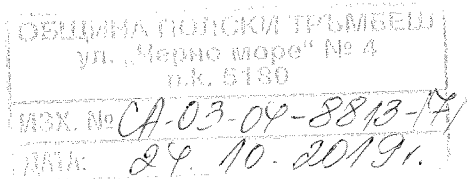 ОБЩИНА ПОЛСКИ ТРЪМБЕШ
ул. „Черно море“ № 4
п.к. 5180
ИЗХ. № СА-03-04-8813-/7/
ДАТА: 24. 10. 2019г.